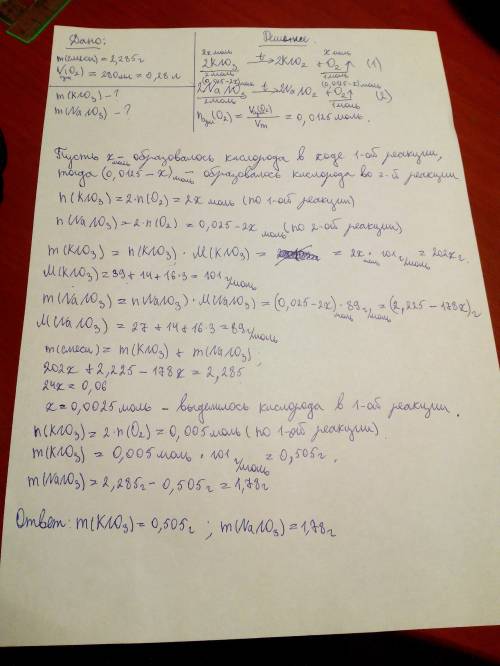 Дано:
m(смеси) = 2,285г
Vобщ(O₂) = 280мл = 0,28 л
m(KNO₃) - ?
m(NaNO₃) - ?
Решение.
2x моль x моль
2KNO₃ t→ 2KNO₂ + O₂↑ (1)
2моль 1моль
(0,025-2x)моль (0,0125-x)моль
2NaNO₃ t→ 2NaNO₂ + O₂↑ (2)
2моль 1моль
nобщ(O₂) = Vобщ(O₂)/Vm = 0,0125 моль.
Пусть x моль - образовалось кислорода в ходе 1-ой реакции,
тогда (0,0125 - x) моль - образовалось кислорода во 2-й реакции
n(KNO₃) = 2·n(O₂) = 2x моль (по 1-ой реакции)
n(NaNO₃) = 2·n(O₂) = 0,025-2x моль (по 2-ой реакции)
m(KNO₃) = n(KNO₃) · M(KNO₃) = = 2x моль · 101 г/моль = 202x г.
M(KNO₃) = 39 + 14 + 16·3 = 101 г/моль
m(NaNO₃) = n(NaNO₃) · M(NaNO₃) = (0,025-2x) моль · 89 г/моль = (2,225 - 178x) г
M(NaNO₃) = 27 + 14 + 16·3 = 89 г/моль
m(смеси) = m(KNO₃) + m(NaNO₃);
202x + 2,225 - 178x = 2,285
24x = 0,06
x = 0,0025 моль - выделилось кислорода в 1-ой реакции.
n(KNO₃) = 2·n(O₂) = 0,005 моль (по 1-ой реакции)
m(KNO₃) = 0,005 моль · 101 г/моль = 0,505 г.
m(NaNO₃) = 2,285г - 0,505г = 1,78г
Ответ: m(KNO₃) = 0,505 г ; m(NaNO₃) = 1,78г